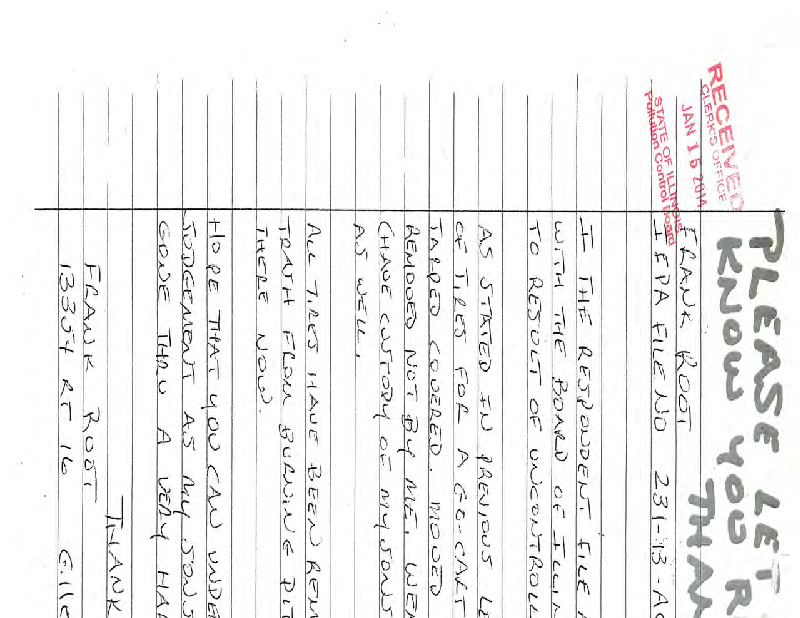 RECEIVED
CLERK'S OFFICE
JAN 15 2014
STATE OF ILLINOIS
Pollution Control Board
PLEASE LET
KNOW YOU R
THAN
FRANK ROOT
IEPA FILE NO 231-13-AC
I THE RESPONDENT FILE A
WITH THE BOARD OF ILLIN
TO RESULT OF UNCONTROLL
AS STATED IN PREVIOUS LE
OF TIRES FOR A GO-CART
TARPED COVERED. MOVED
REMOVED NOT BY ME, WEN
(HAVE CUSTODY OF MY SONS
AS WELL.
ALL TIRES HAVE BEEN REM
TRATH FROM BURNING PIT
THERE NOW.
HOPE THAT YOU CAN UNDE
JUDGEMENT AS MY SONS
GONE THRU A VERY HAR
THANK
FRANK ROOT
13354 RT 16 Gille